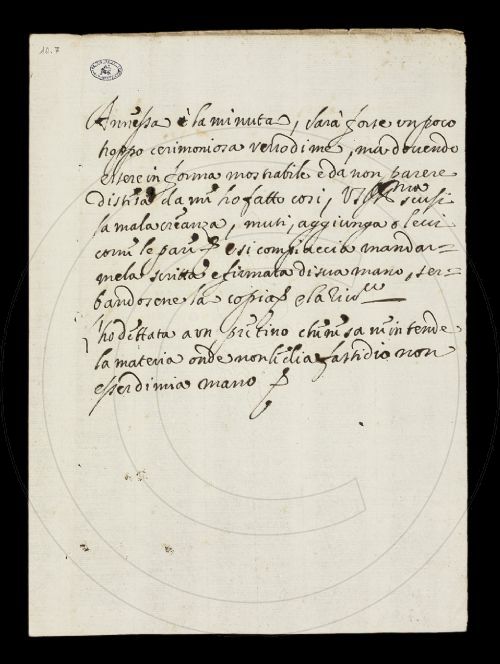 10.7
Annessa è la minuta, sarà forse un poco
troppo cerimoniosa verso di me, ma dovendo
essere in forma mostrabile e da non parere
da me ho fatto così, scusi
la mala creanza, muti, aggiunga o levi
come le pare e si compiaccia mandar=
mela scritta e firmata di sua mano, ser=
bandosene la copia
l'ho dettata a un che non sa ne intende
la materia onde non li dia fastidio non
esser di mia mano